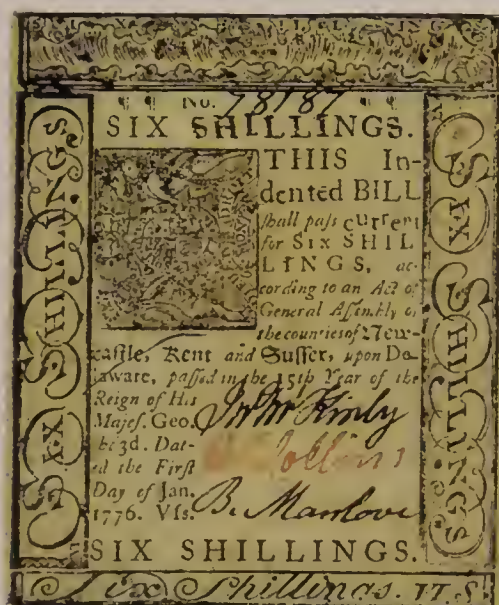 ¶ ¶ No. 78187 ¶ ¶
SIX SHILLINGS.
THIS In-
dented BILL
ſhall paſs current
for SIX SHIL
LINGS, ac-
cording to an Act of
General Aſſembly of
the counties of New-
caſtle, Kent and Suſſex, upon De-
laware, paſſed in the 15th Year of the
Reign of His
Majeſ. Geo.
the 3d. Dat-
ed the Firſt
Day of Jan.
1776. VIs.
Collins
B. Manlove
SIX SHILLINGS.
Six Shillings.
SIX SHILLINGS
SIX SHILLINGS